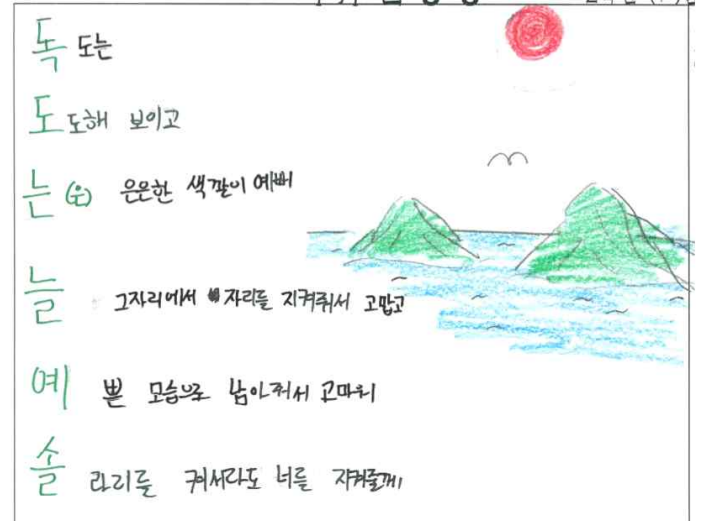 독 도는
도 도해 보이고
는(은) 은은한 색깔이 예뻐
늘 그자리에서 자리를 지켜줘서 고맙고
예 쁜 모습으로 남아줘서 고마워
솔 라리를 켜서라도 너를 지켜줄게